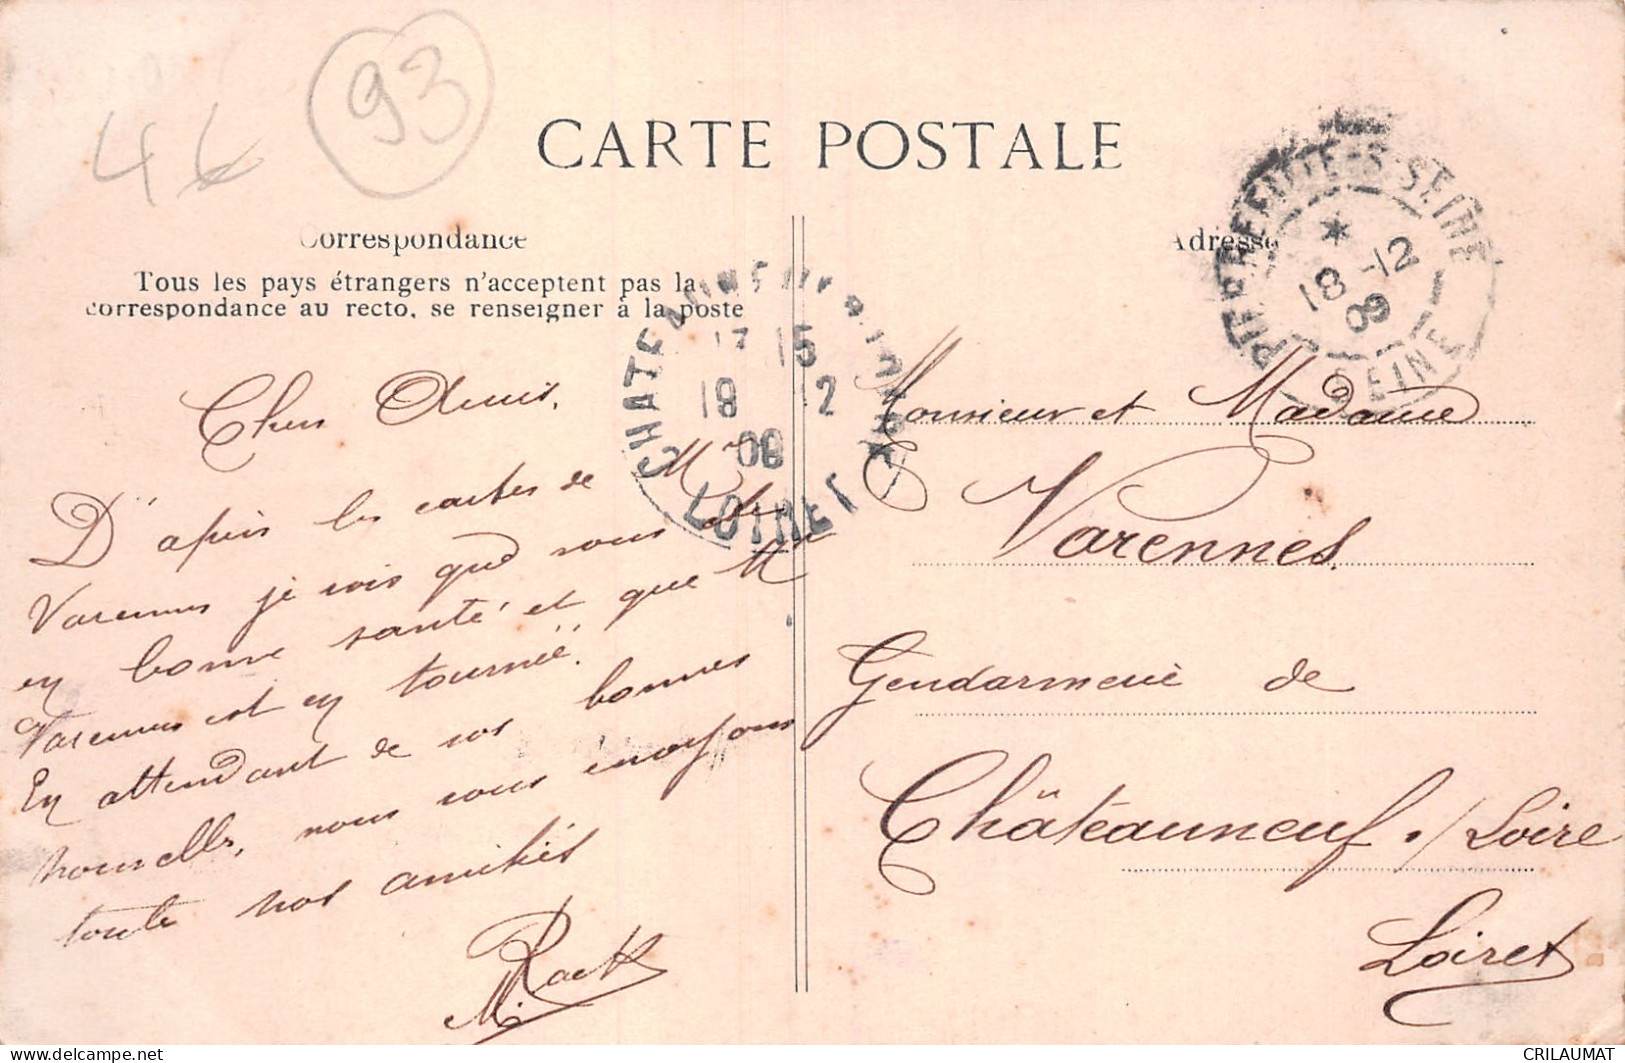 46
93
CARTE POSTALE
Correspondance
Adresse
Tous les pays étrangers n'acceptent pas la
correspondance au recto, se renseigner à la poste
PIERREFITTE-S-SEINE
*
18 -12
09
SEINE
CHATEAUNEUF-SUR-LOIRE
17 15
18 12
09
LOIRET
Chers Amis,
D'après les cartes de Mme
Varennes je vois que vous êtes
en bonne santé et que Mr
Varennes est en tournée.
En attendant de vos bonnes
nouvelles, nous vous envoyons
toute nos amitiés
M. Rack
Monsieur et Madame
Varennes.
Gendarmerie de
Châteauneuf s/Loire
Loiret
delcampe.net
CRILAUMAT